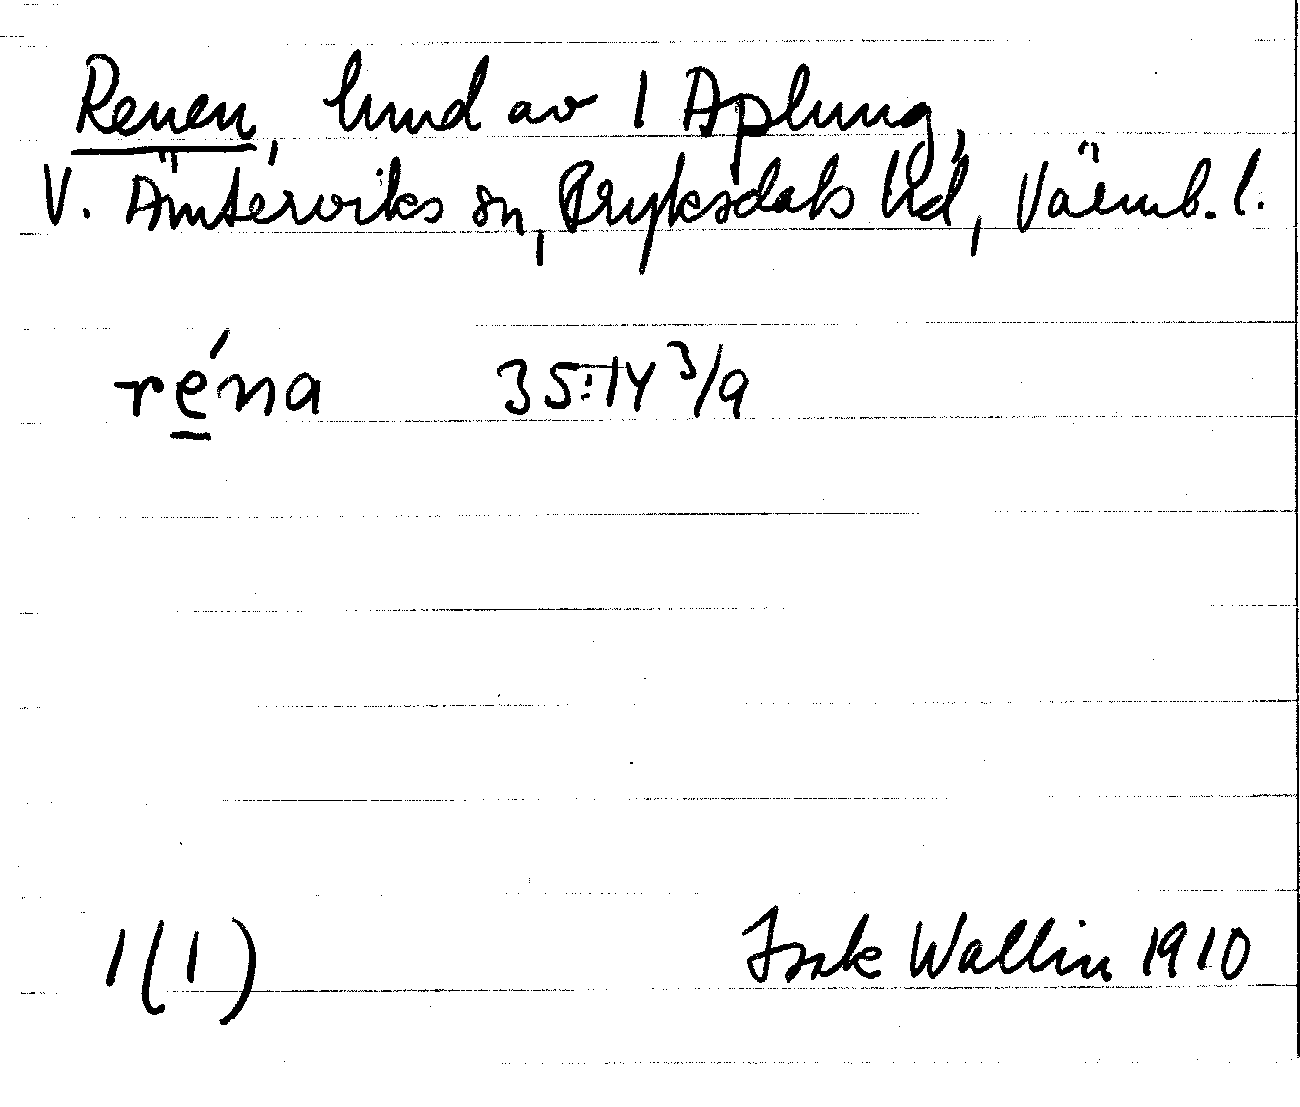 Renen, lmd av 1 Aplung,
V. Ämterviks sn, Fryksdals hd, Värmb. l.
réna 35:14 3/9
1(1) Isak Wallin 1910